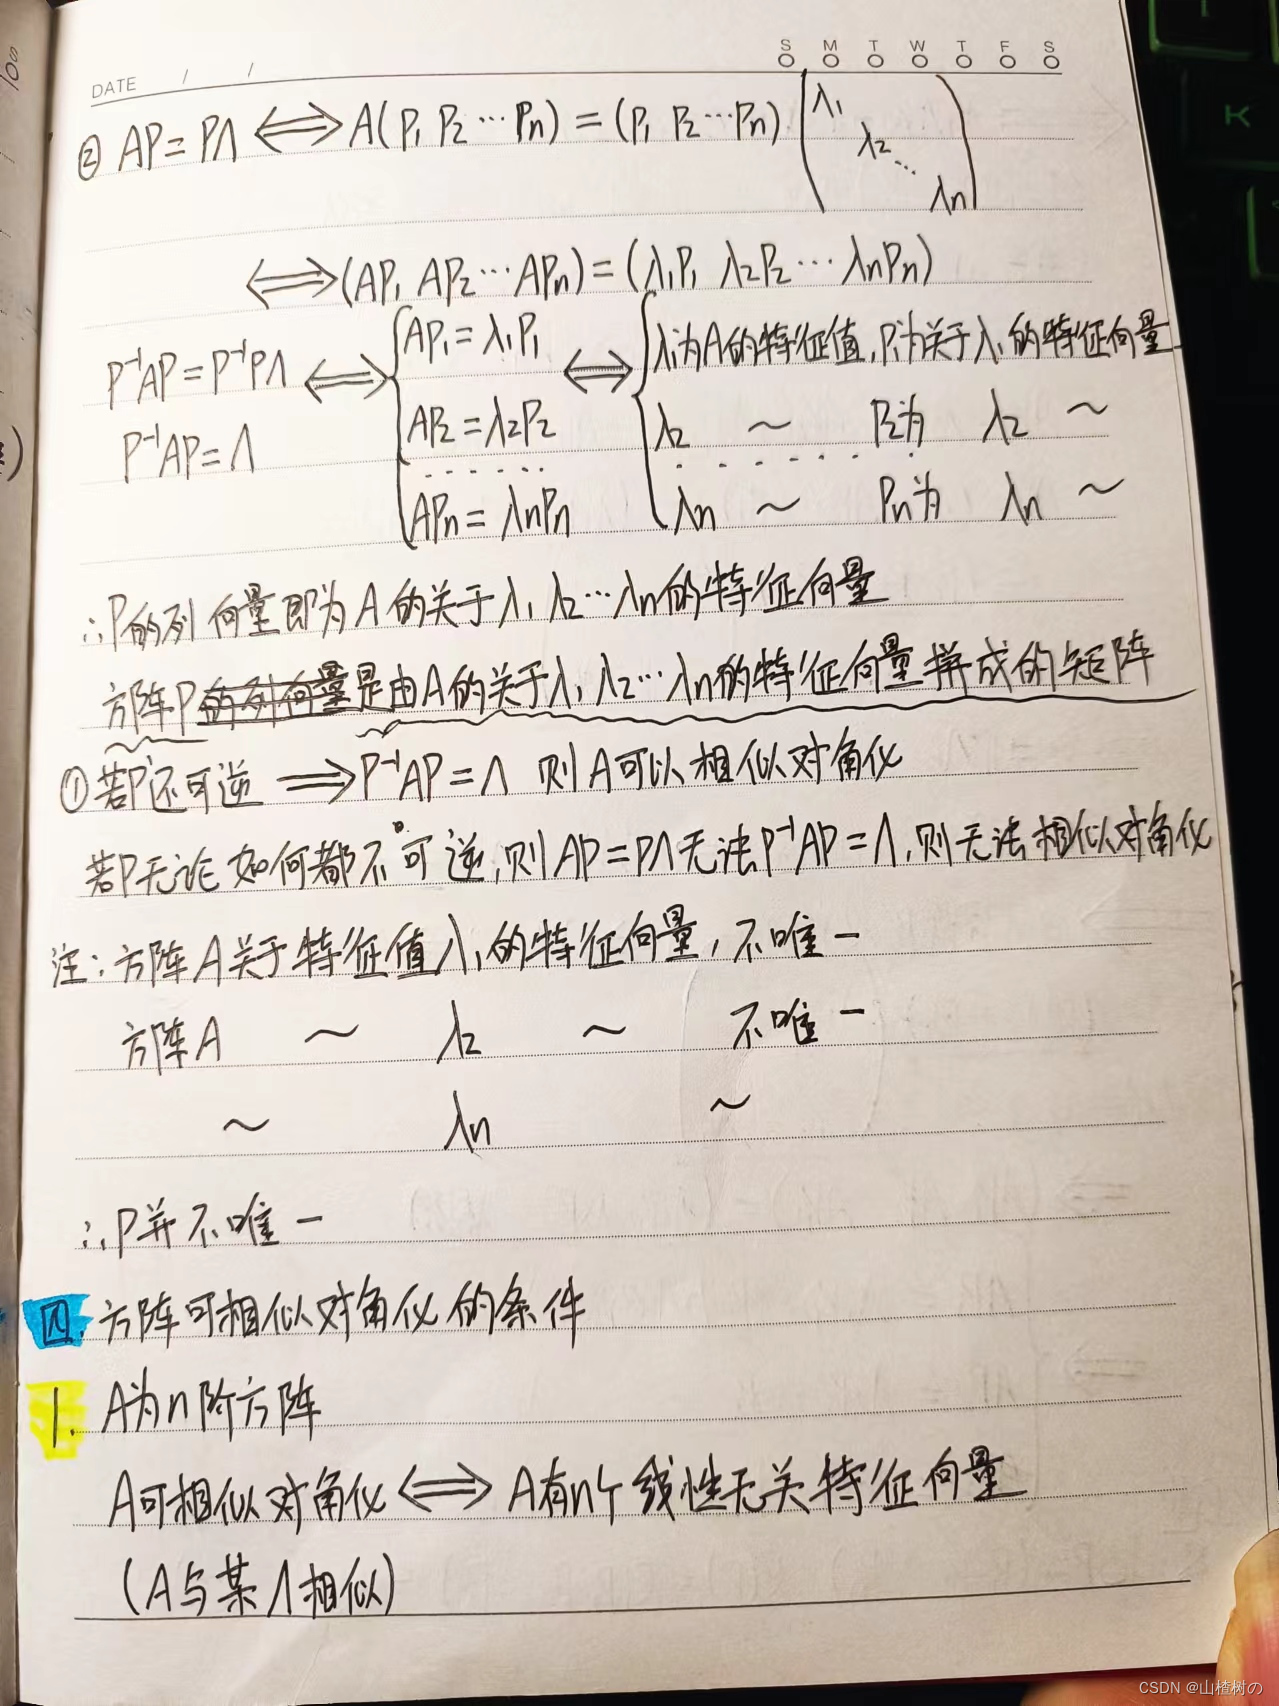 DATE / / S M T W T F S
② AP=PΛ ⟺ A(P₁ P₂ ⋯ Pn) = (P₁ P₂ ⋯ Pn) (λ₁ λ₂ ⋯ λn)
⟺ (AP₁ AP₂ ⋯ APn) = (λ₁P₁ λ₂P₂ ⋯ λnPn)
P⁻¹AP=P⁻¹PΛ ⟺ { AP₁=λ₁P₁ ⟺ { λ₁为A的特征值,P₁为关于λ₁的特征向量
P⁻¹AP=Λ AP₂=λ₂P₂ λ₂ ~ P₂为 λ₂ ~
⋯⋯ ⋯⋯
APn=λnPn λn ~ Pn为 λn ~
∴P的列向量即为A的关于λ₁ λ₂⋯λn的特征向量
方阵P的列向量是由A的关于λ₁ λ₂⋯λn的特征向量拼成的矩阵
①若P还可逆 ⟹ P⁻¹AP=Λ 则A可以相似对角化
若P无论如何都不可逆,则AP=PΛ无法P⁻¹AP=Λ,则无法相似对角化
注:方阵A关于特征值λ₁的特征向量,不唯一
方阵A ~ λ₂ ~ 不唯一
~ λn ~
∴P并不唯一
四.方阵可相似对角化的条件
1. A为n阶方阵
A可相似对角化 ⟺ A有n个线性无关特征向量
(A与某Λ相似)
CSDN @山楂树の